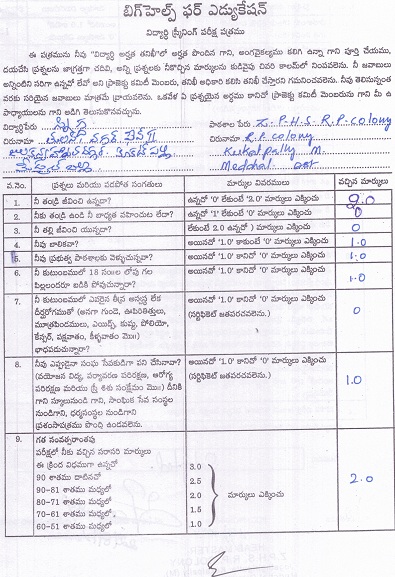 బిగ్‌హెల్ప్ ఫర్ ఎడ్యుకేషన్
విద్యార్థి స్క్రీనింగ్ పరీక్ష పత్రము
ఈ పత్రమును నీవు "విద్యార్థి అర్హత తనిఖీ"లో అర్హత పొందిన గాని, అంగవైకల్యము కలిగి ఉన్నా గాని పూర్తి చేయము,
దయచేసి ప్రశ్నలను జాగ్రత్తగా చదివి, అన్ని ప్రశ్నలకు నీకొచ్చిన మార్కులను కుడివైపు చివరి కాలమ్‌లో నింపవలెను. నీ జవాబులు
అన్నింటిని సరిగా ఉన్నదో లేదో అని ప్రాజెక్టు కమిటీ మెంబరు, తనిఖీ అధికారి కలిసి తనిఖీ చేస్తారని గమనించవలెను. నీవు తెలిసినన్నంత
వరకు సరియైన జవాబులు మాత్రమే వ్రాయవలెను. ఒకవేళ ఏ ప్రశ్నయైన అర్థము కానిచో ప్రాజెక్టు కమిటీ మెంబరును గాని మీ ఉ
పాధ్యాయులను గాని అడిగి తెలుసుకొనవచ్చును.
విద్యార్థిపేరు పాఠశాల పేరు Z.P.H.S R.P. colony
చిరునామా చిరునామా R.P. colony
Kukatpally M.
Medchal
వ.నెం. ప్రశ్నలు మరియు పరపోత సంగతులు మార్కుల వివరములు వచ్చిన మార్కులు
1. నీ తండ్రి జీవించి ఉన్నడా? ఉన్నచో '0' లేకుంటే '2.0' మార్కులు ఎక్కించు 2.0
2. నీకు తండ్రి ఉండి నీ బాధ్యత వహించుట లేదా? ఉన్నచో '1' లేకుంటే '0' మార్కులు ఎక్కించు 0
3. నీ తల్లి జీవించి యున్నదా? లేకుంటే 2.0 ఉన్నచో ) మార్కులు ఎక్కించు 0
4. నీవు బాలికవా? అయినచో '1.0' కాకుంటే '0' మార్కులు ఎక్కించు 1.0
5. నీవు ప్రభుత్వ పాఠశాలకు వెళ్ళుచున్నవా? అయినచో '1.0' కానిచో '0' మార్కులు ఎక్కించు 1.0
6. నీ కుటుంబములో 18 సం॥ల లోపు గల అయినచో '1.0' కానిచో '0' మార్కులు ఎక్కించు 1.0
పిల్లలందరూ బడికి పోవుచున్నారా?
7. నీ కుటుంబములో ఎవరైన తీవ్ర అస్వస్థ లేక అయినచో '1.0' కానిచో '0' మార్కులు ఎక్కించు 0
దీర్ఘరోగముతో (అనగా గుండె, ఊపిరితిత్తులు, (సర్టిఫికెట్ జతపరచవలెను.)
మూత్రపిండములు, ఎయిడ్స్, కుష్ఠు, పోలియో,
కేన్సర్, పక్షవాతం, కీళ్ళవాతం మొ॥)
బాధపడుచున్నారా?
8. నీవు ఎప్పుడైనా సంఘ సేవకుడిగా పని చేసినావా? అయినచో '1.0' కానిచో '0' మార్కులు ఎక్కించు 1.0
(వయోజన విద్య, పర్యావరణ పరిరక్షణ, ఆరోగ్య (సర్టిఫికెట్ జతపరచవలెను.)
పరిరక్షణ మరియు స్త్రీ శిశు సంక్షేమం మొ॥) దీనికి
గాని స్కూలునుండి గాని, సాంఘిక సేవ సంస్థల
నుండిగాని, ధర్మసంస్థల నుండిగాని
ప్రశంసాపత్రము పొంది ఉండవలెను.
9. గత సంవత్సరాంతపు
పరీక్షలో నీకు వచ్చిన సరాసరి మార్కులు
ఈ క్రింద విధముగా ఉన్నచో 3.0
90 శాతము దాటినచో 2.5
90-81 శాతము మధ్యలో 2.0 మార్కులు ఎక్కించు 2.0
80-71 శాతము మధ్యలో 1.5
70-61 శాతము మధ్యలో 1.0
60-51 శాతము మధ్యలో